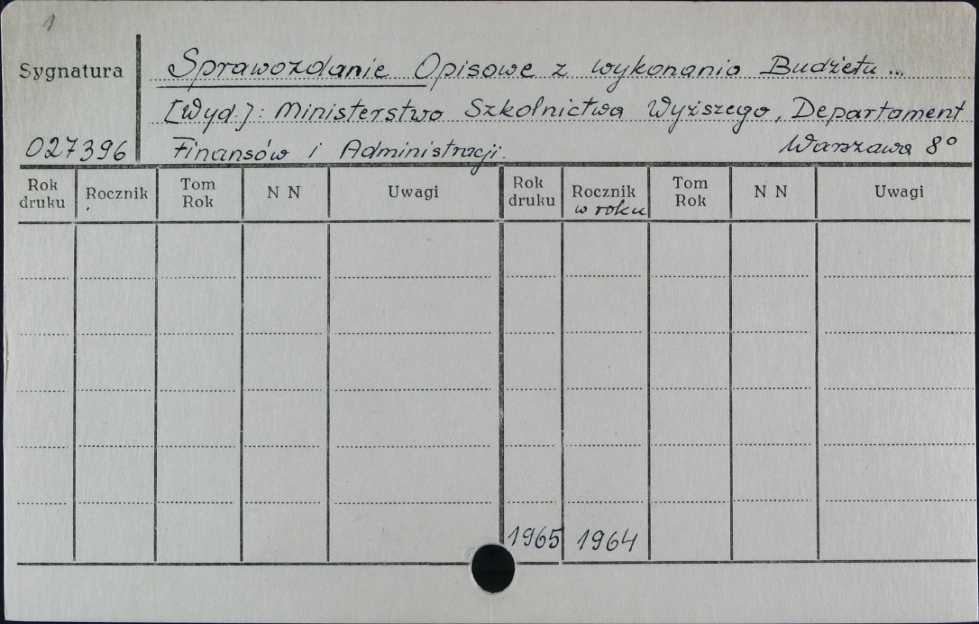 1
Sygnatura
Sprawozdanie Opisowe z wykonania Budżetu...
[Wyd.]: Ministerstwo Szkolnictwa Wyższego, Departament
027396
Finansów i Administracji.
Warszawa 8°
Rok druku
Rocznik
Tom Rok
N N
Uwagi
Rok druku
Rocznik w roku
Tom Rok
N N
Uwagi
1965 1964